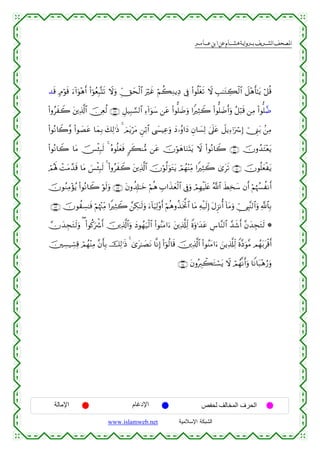 المصحف الشريف برواية هشام عن ابن عامر
قُلْ يَٰٓأَهْلَ ٱلْكِتَٰبِ لَا تَغْلُوا۟ فِى دِينِكُمْ غَيْرَ ٱلْحَقِّ وَلَا تَتَّبِعُوٓا۟ أَهْوَآءَ قَوْمٍ قَد
ضَّلُّوا۟ مِن قَبْلُ وَأَضَلُّوا۟ كَثِيرًا وَضَلُّوا۟ عَن سَوَآءِ ٱلسَّبِيلِ لُعِنَ ٱلَّذِينَ كَفَرُوا۟
مِنۢ بَنِىٓ إِسْرَٰٓءِيلَ عَلَىٰ لِسَانِ دَاوُۥدَ وَعِيسَى ٱبْنِ مَرْيَمَ ذَٰلِكَ بِمَا عَصَوا۟ وَّكَانُوا۟
يَعْتَدُونَ كَانُوا۟ لَا يَتَنَاهَوْنَ عَن مُّنكَرٍ فَعَلُوهُ لَبِئْسَ مَا كَانُوا۟
يَفْعَلُونَ تَرَىٰ كَثِيرًا مِّنْهُمْ يَتَوَلَّوْنَ ٱلَّذِينَ كَفَرُوا۟ لَبِئْسَ مَا قَدَّمَتْ لَهُمْ
أَنفُسُهُمْ أَن سَخِطَ ٱللَّهُ عَلَيْهِمْ وَفِى ٱلْعَذَابِ هُمْ خَٰلِدُونَ وَلَوْ كَانُوا۟ يُؤْمِنُونَ
بِٱللَّهِ وَٱلنَّبِىِّ وَمَآ أُنزِلَ إِلَيْهِ مَا ٱتَّخَذُوهُمْ أَوْلِيَآءَ وَلَٰكِنَّ كَثِيرًا مِّنْهُمْ فَٰسِقُونَ
لَتَجِدَنَّ أَشَدَّ ٱلنَّاسِ عَدَٰوَةً لِّلَّذِينَ ءَامَنُوا۟ ٱلْيَهُودَ وَٱلَّذِينَ أَشْرَكُوا۟ وَلَتَجِدَنَّ
أَقْرَبَهُم مَّوَدَّةً لِّلَّذِينَ ءَامَنُوا۟ ٱلَّذِينَ قَالُوٓا۟ إِنَّا نَصَٰرَىٰ ذَٰلِكَ بِأَنَّ مِنْهُمْ قِسِّيسِينَ
وَرُهْبَانًا وَأَنَّهُمْ لَا يَسْتَكْبِرُونَ
الحرف المخالف لحفص الإدغام الإمالة
الشبكة الإسلامية www.islamweb.net